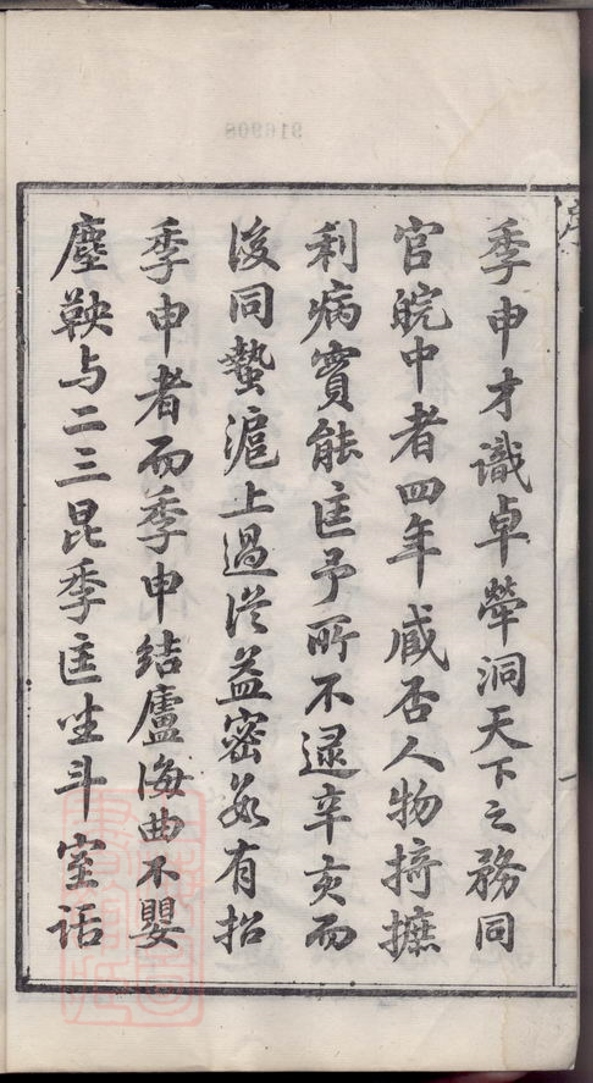 季申才識卓犖洞天下之務同
官皖中者四年臧否人物掎摭
利病實能匡予所不逮辛亥而
後同蟄滬上過從益密或有招
季申者而季申結廬海曲不嬰
塵鞅与二三昆季匡坐斗室话
916908